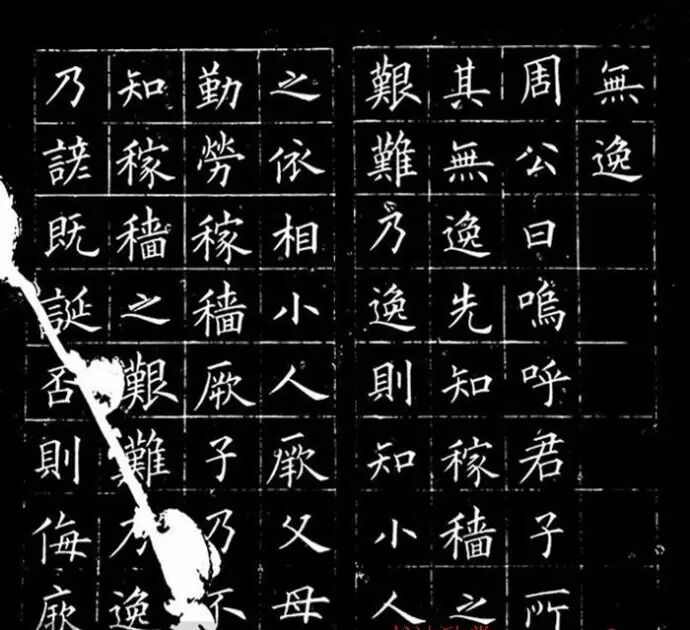 無逸
周公曰嗚呼君子所
其無逸先知稼穡之
艱難乃逸則知小人
之依相小人厥父母
勤勞稼穡厥子乃不
知稼穡之艱難乃逸
乃諺既誕否則侮厥